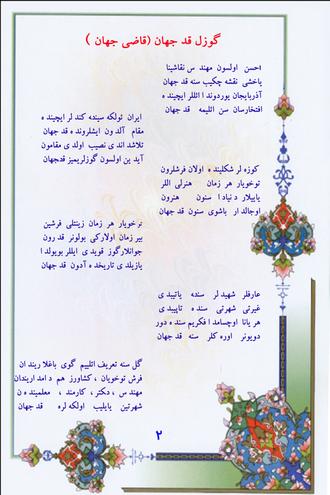 گوزل قد جهان (قاضی جهان )
احسن اولسون مهند س نقاشینا
باخشی نقشه چکیب سنه قد جهان
آذربایجان یوردوند ا ائللر ایچیند ه
افتخارسان سن ائلیمه قد جهان
ایران تولکه سینده کند لر ایچیند ه
مقام آلد ون ایشلروند ه قد جهان
تلاشد اند ی نصیب اولد ی مقامون
آید ین اولسون گوزلریمیز قدجهان
کوزه لر شکلینده اولان فرشلرون
توخویار هر زمان هنرلی اللر
یاییلار دنیاد ا سنون هنرون
اوجالد ار باشوی سنون قد جهان
توخویار هر زمان زینتلی فرشین
بیر زمان اولارکی بولونر قد رون
جوانلارگوز قوید ی ایللر بویولد ا
یازیلد ی تاریخد ه آدون قد جهان
عارفلر شهید لر سنده یاتیبد ی
غیرتی شهرتی سند ه تاپیبد ی
هر یانا اوچسامد ا فکریم سند ه دور
دویونر اوره کلر سنه قد جهان
گل سنه تعریف ائلییم گوی باغلا ریند ان
فرش توخویان ، کشاورز هم د امد اریندان
مهند س ، دکتر ، کارمند ، معلمیند ن
شهرتین یاییلیب اولکه لره قد جهان
۲